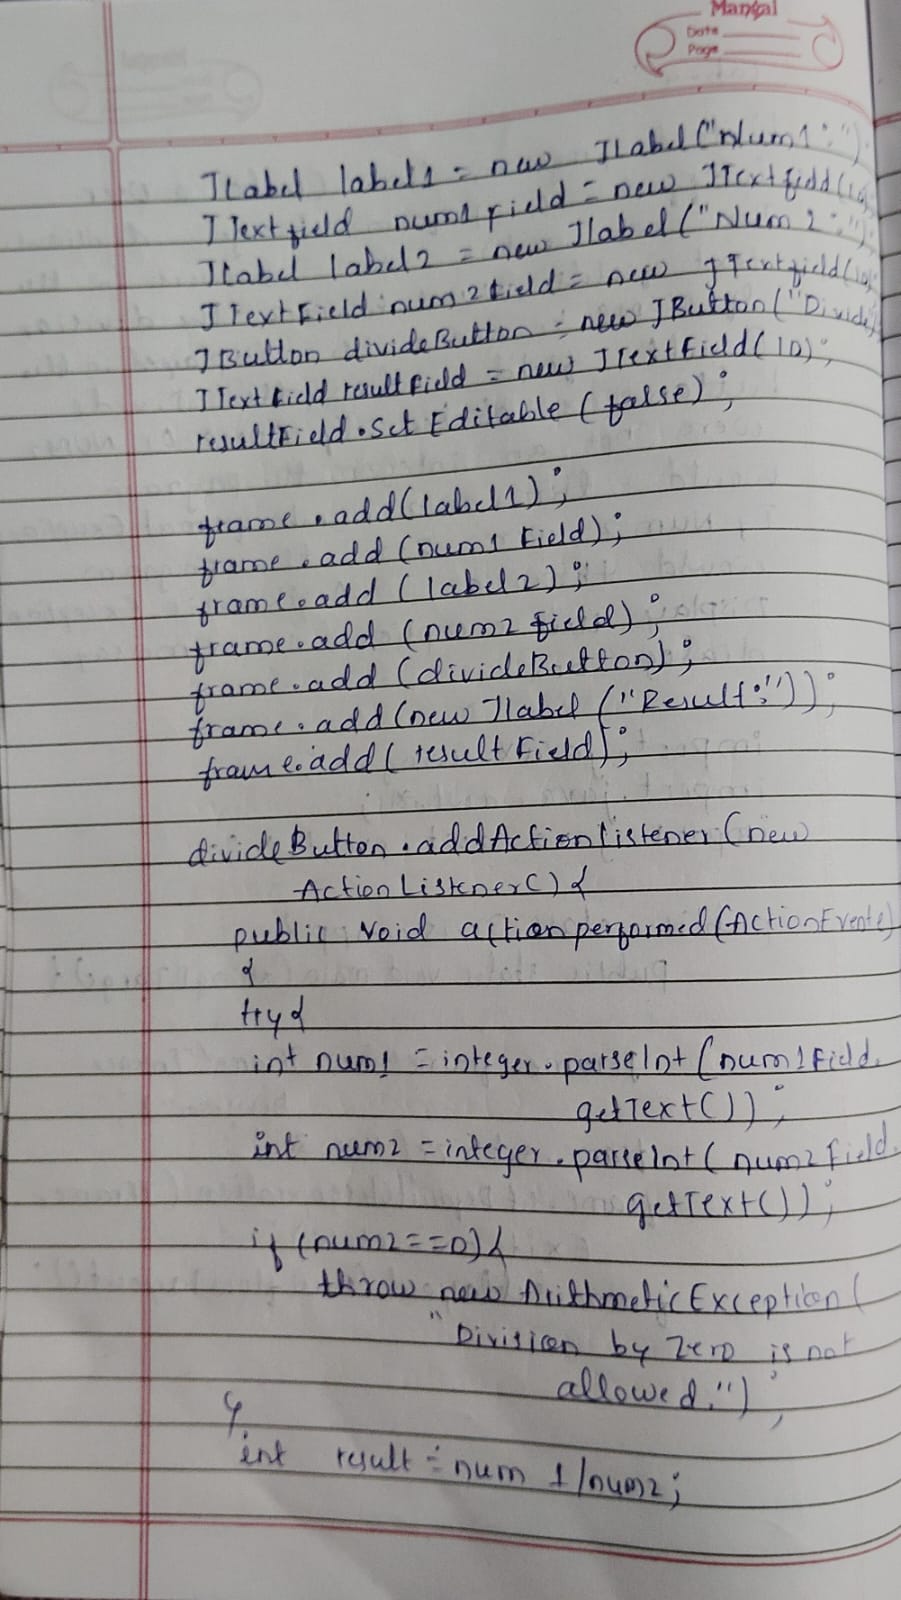 Mangal
Date
Page
JLabel label1 = new JLabel("Num1:")
JTextfield num1field = new JTextfield(10)
JLabel label2 = new Jlabel("Num2:")
JTextField num2field = new JTextfield(10)
JButton divideButton = new JButton("Divide")
JTextfield resultField = new JTextField(10);
resultField.SetEditable(false);
frame.add(label1);
frame.add(num1Field);
frame.add(label2);
frame.add(num2field);
frame.add(divideButton);
frame.add(new Jlabel("Result:"));
frame.add(resultField);
divideButton.addActionlistener(new
ActionListener(){
public void actionperformed(ActionEvente)
{
try{
int num1 = integer.parseInt(num1Field.
getText());
int num2 = integer.parseInt(num2field.
getText());
if(num2==0){
throw new ArithmeticException(
"Division by Zero is not
allowed.");
}
int result = num1/num2;